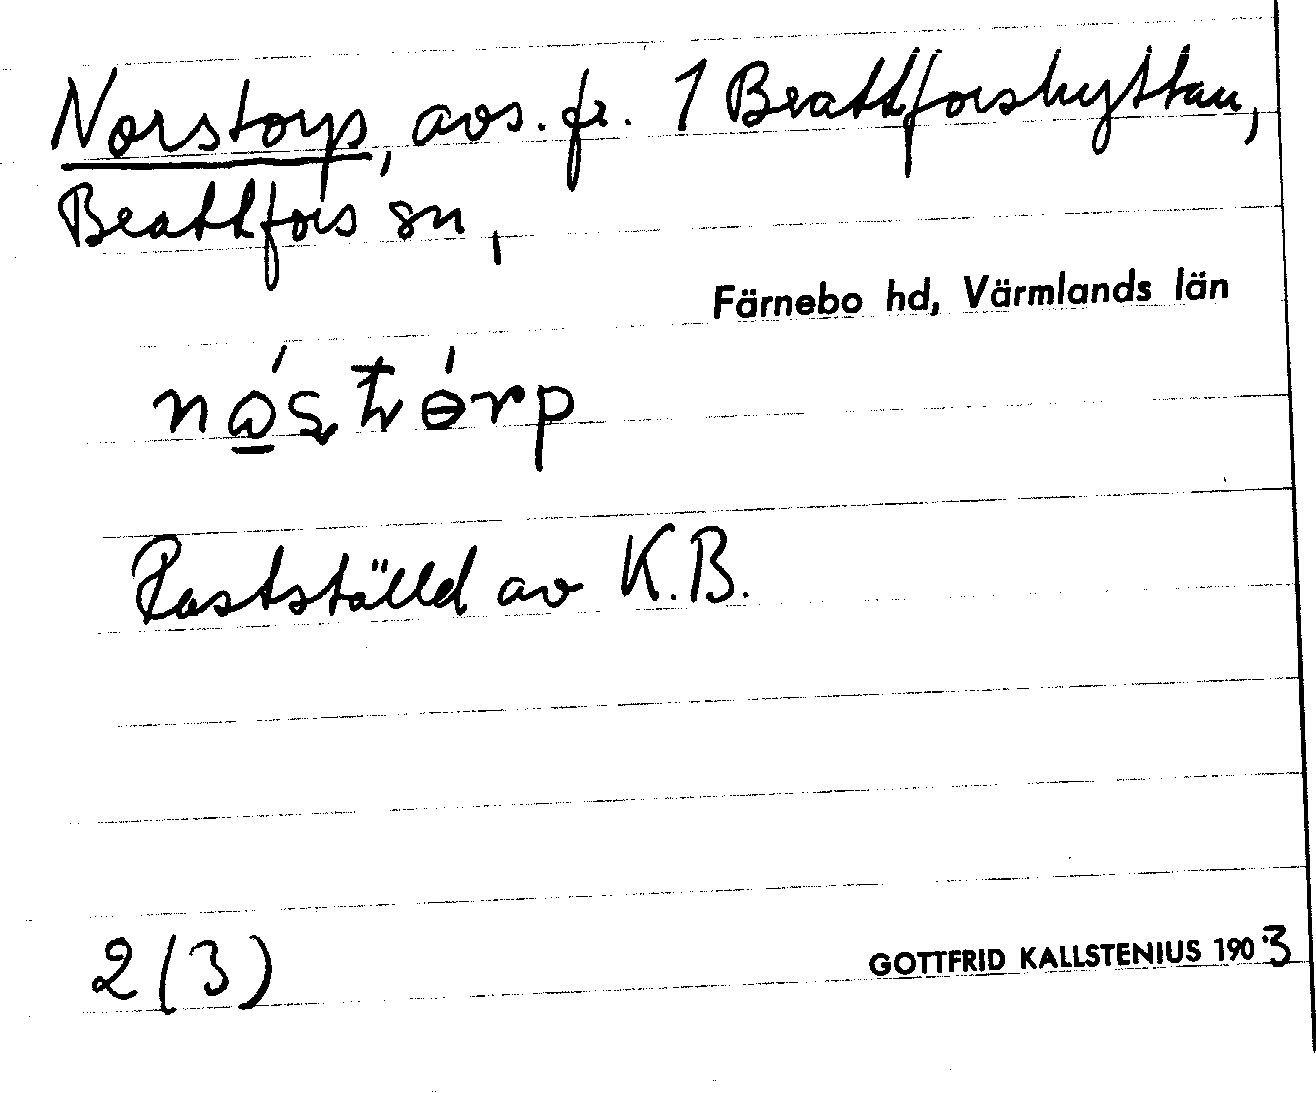 Norstorp, avs. fr. 1 Brattforshyttan,
Brattfors sn,
Färnebo hd, Värmlands län
Fastställd av K.B.
2 (3)
GOTTFRID KALLSTENIUS 1903